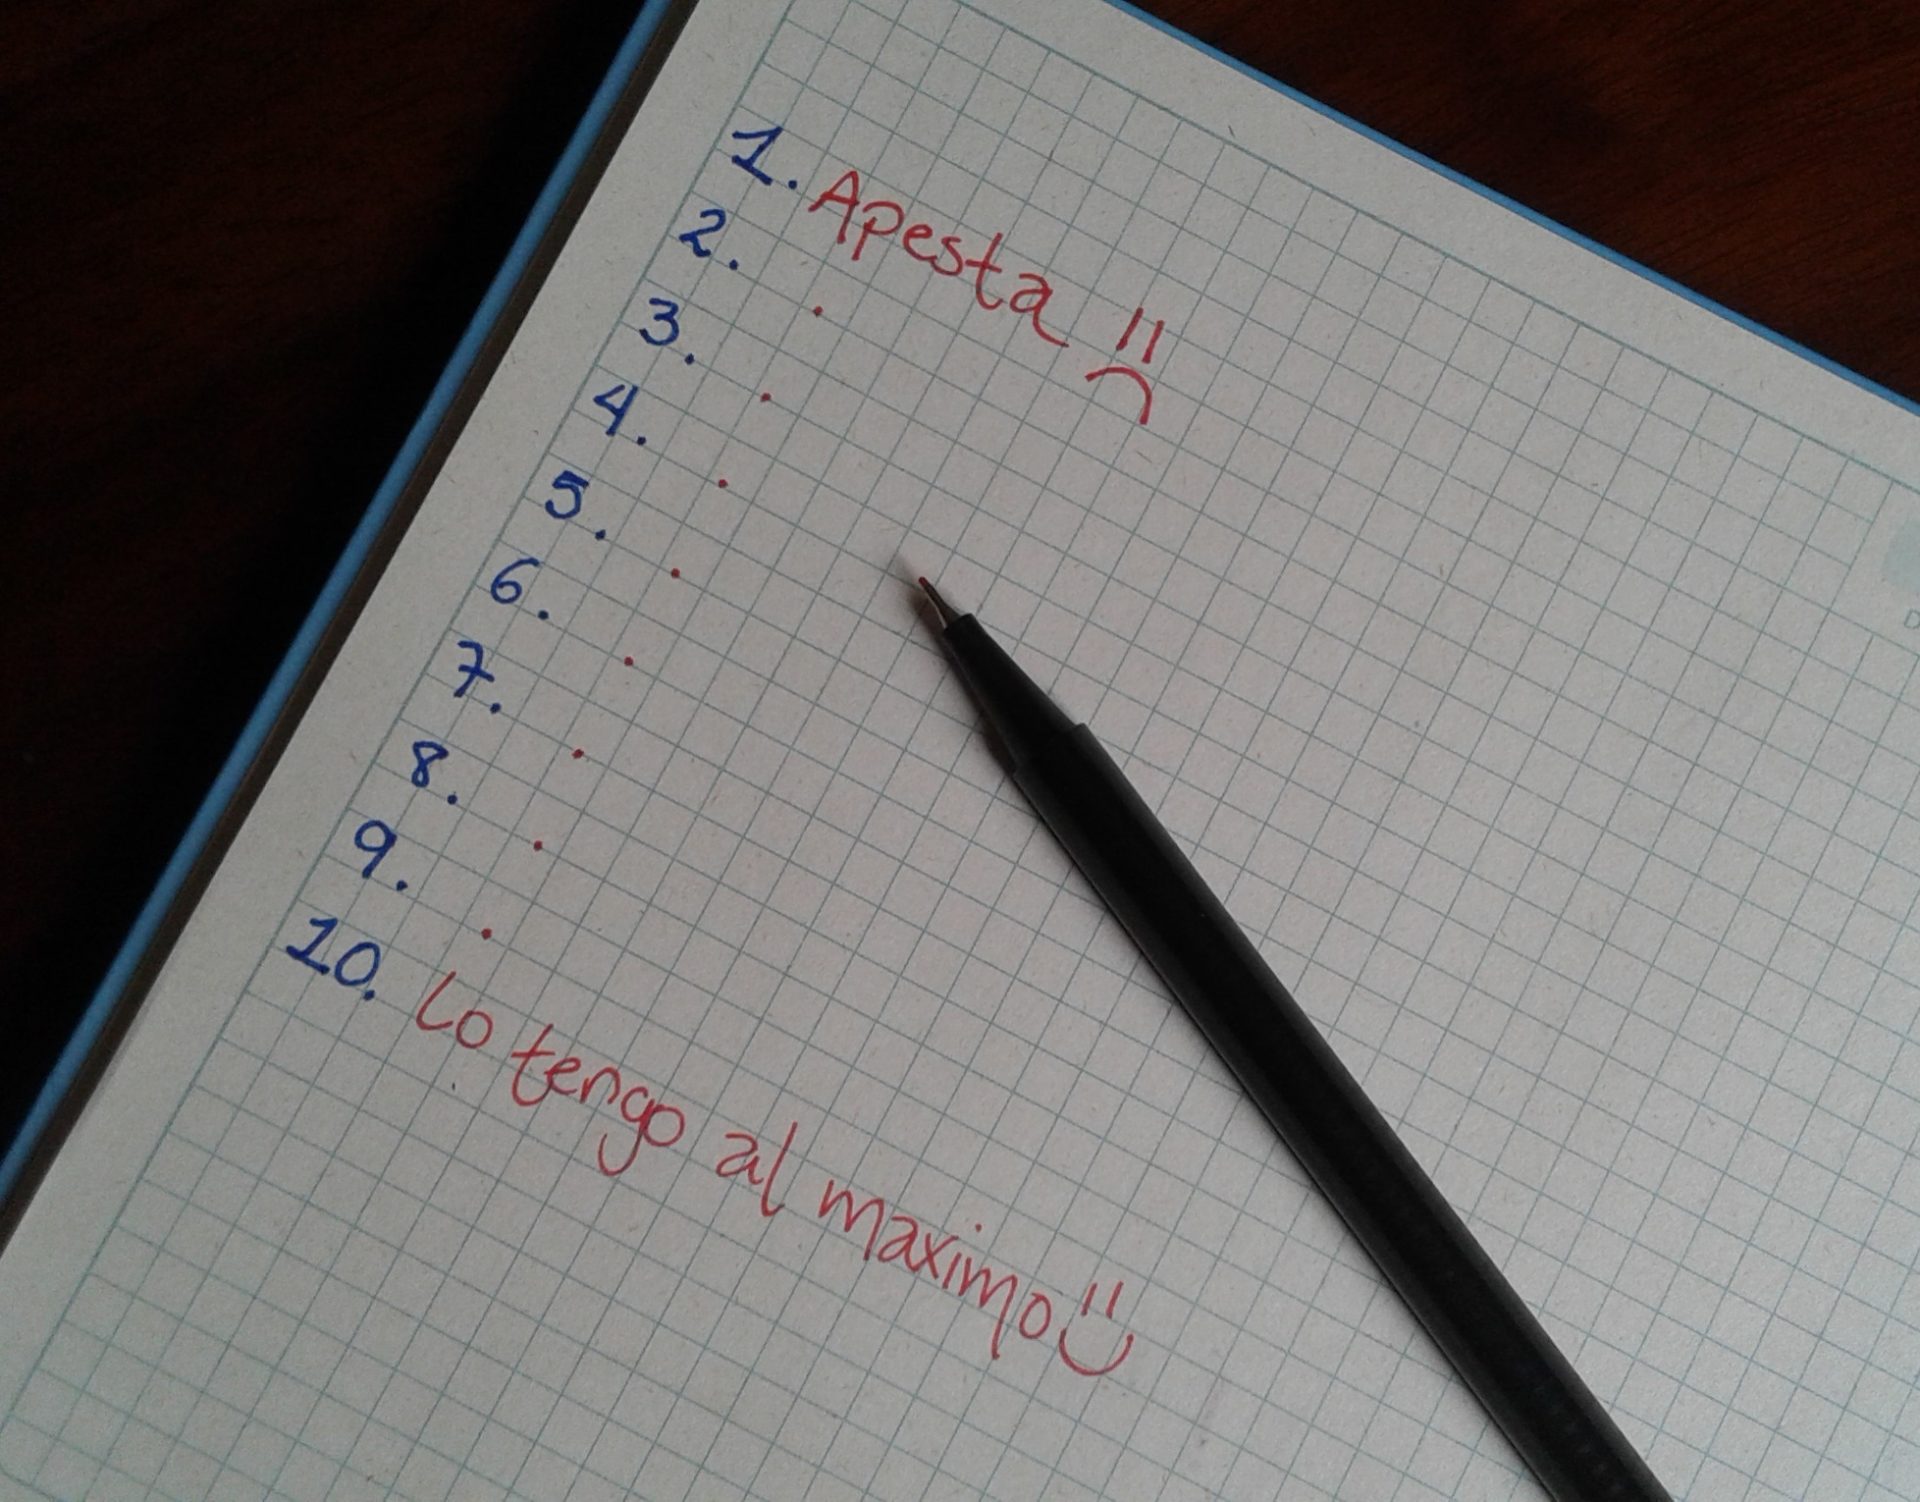 1. Apesta
2. .
3. .
4. .
5. .
6. .
7. .
8. .
9. .
10. Lo tengo al maximo